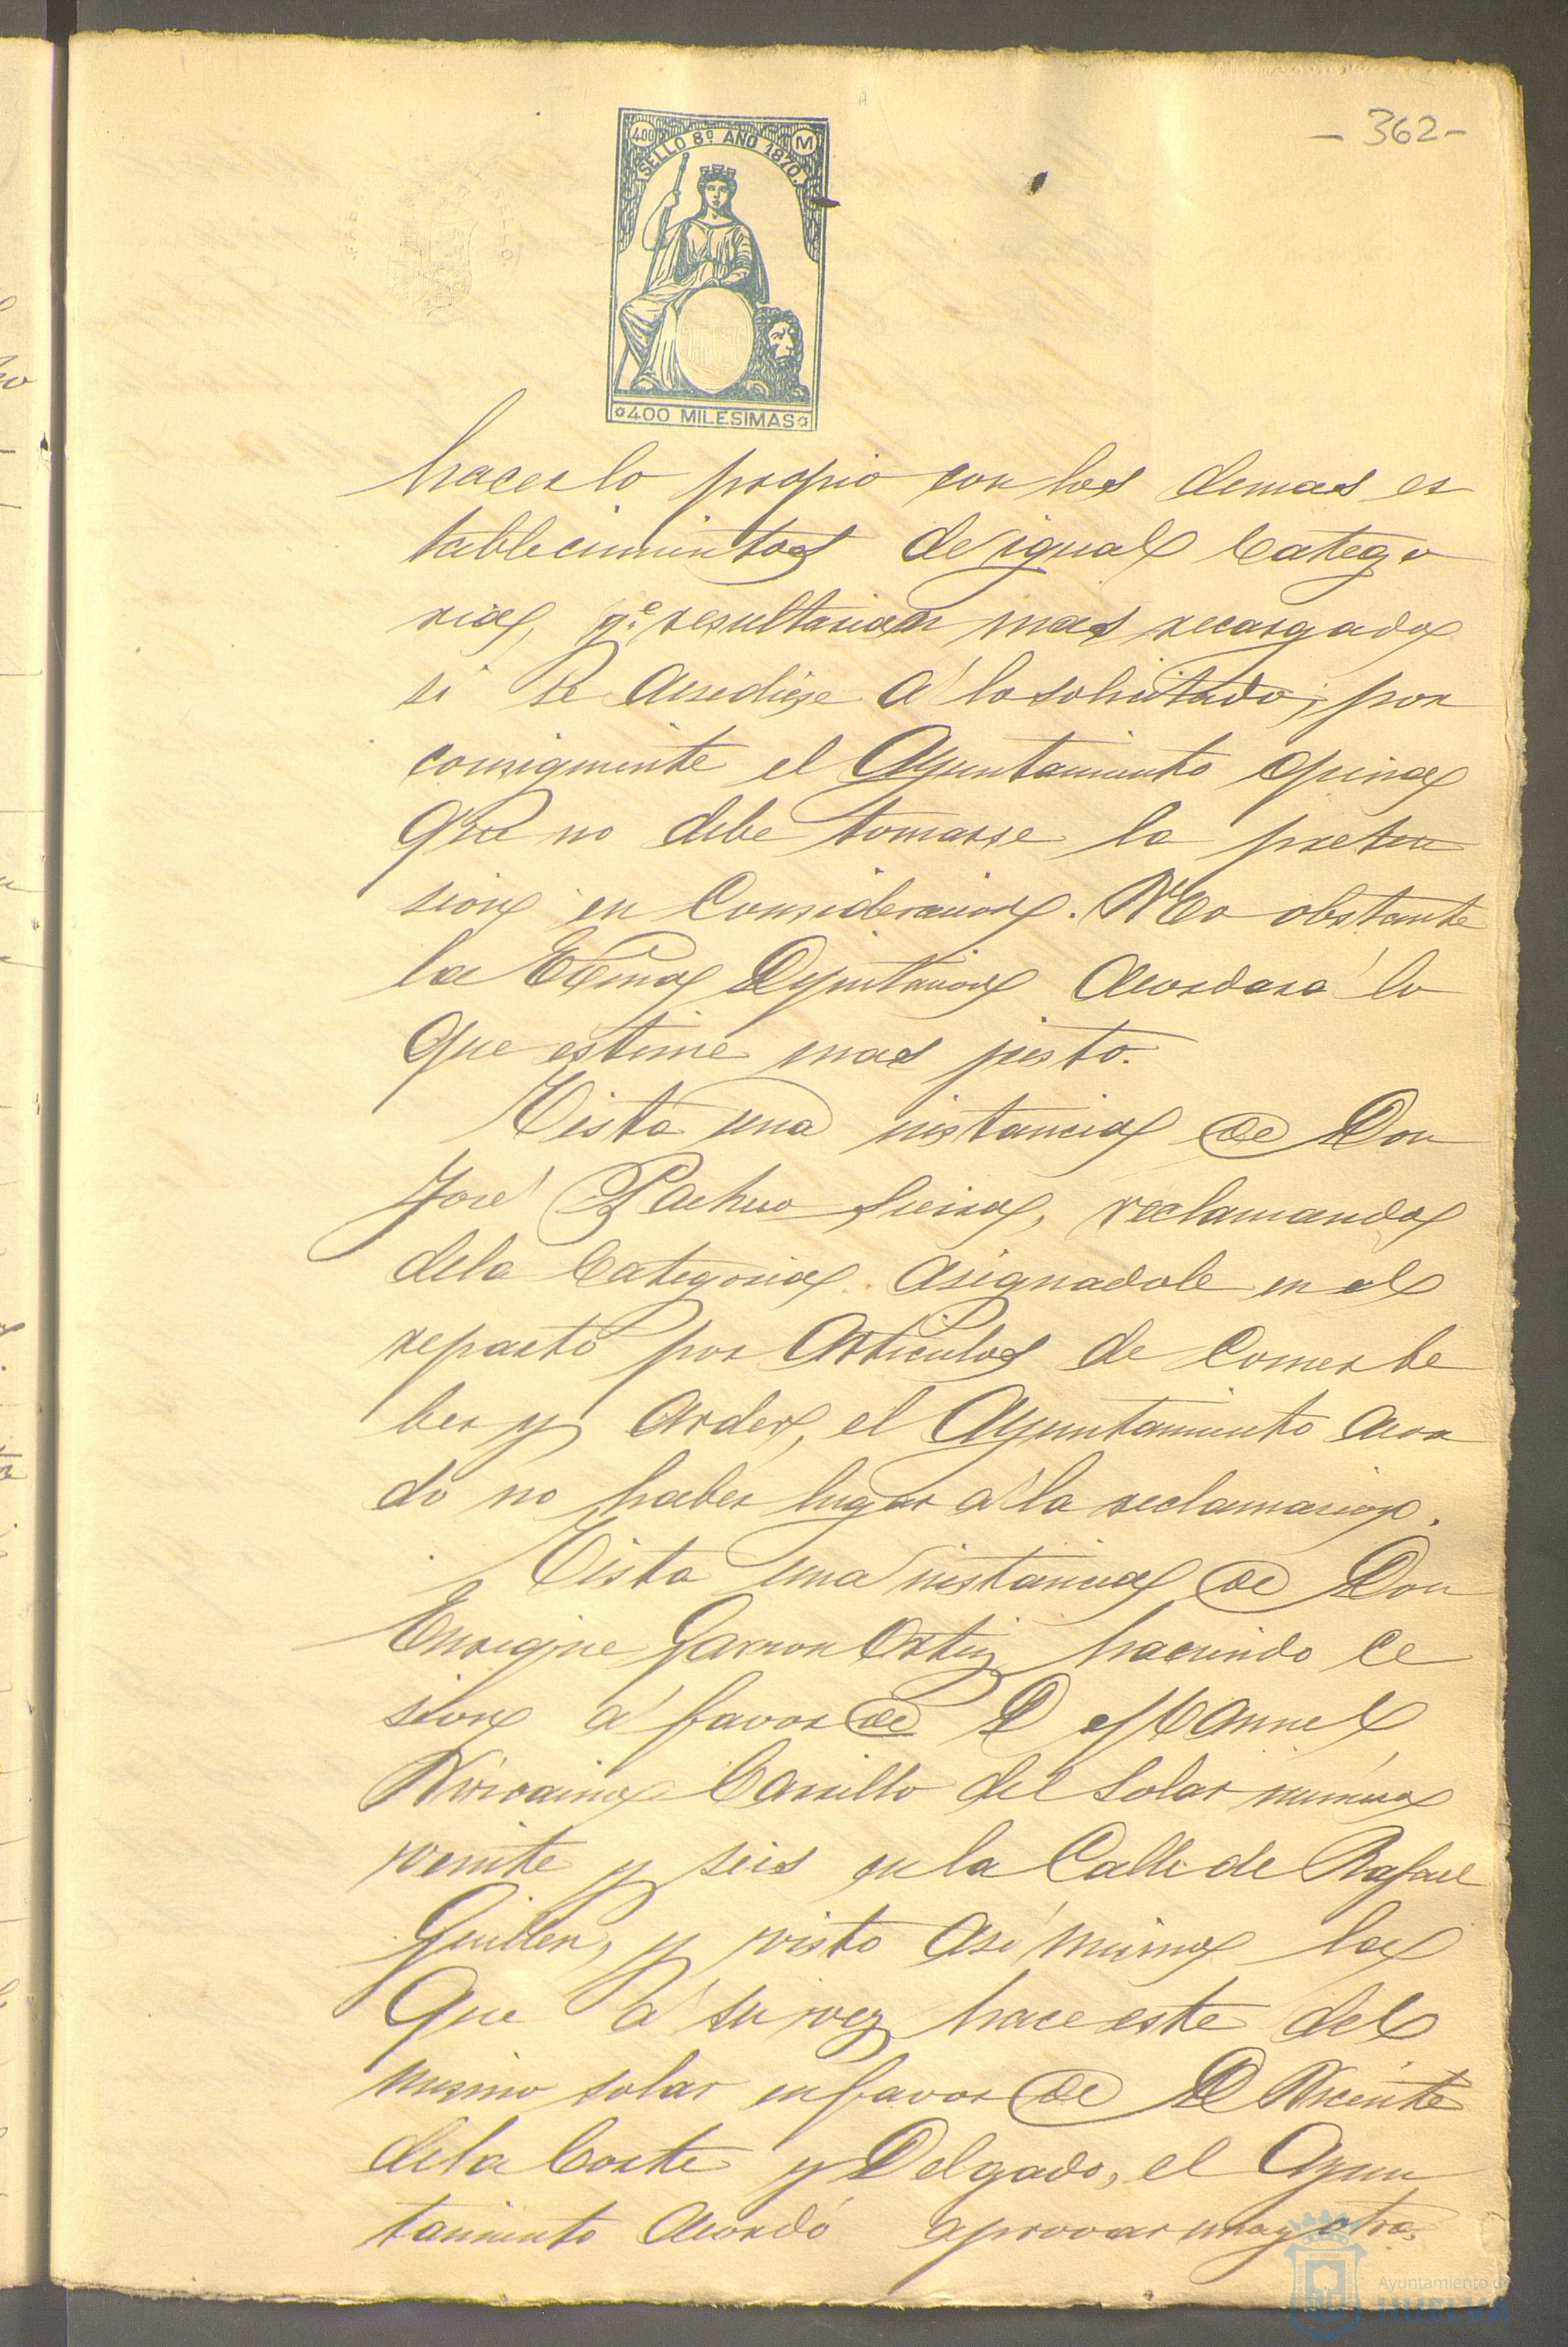 - 362 -
400 M
SELLO 8º AÑO 1870.
400 MILESIMAS
hacer lo propio con los demas es
tablecimientos de igual catego
ria, q.e resultarian mas recargados
si se accediese á lo solicitado; por
consiguiente el Ayuntamiento opina
que no debe tomarse la preten
sion en consideracion. No obstante
la Exma Diputacion acordará lo
que estime mas justo.
Vista una instancia de Don
José Pacheco, reclamando
dela categoria asignadole en el
reparto por articulos de comer be
ber y arder, el Ayuntamiento acor
dó no haber lugar á la reclamacion.
Vista una instancia de Don
Enrique Garron Ortiz haciendo ce
sion á favor de D Manuel
Vizcaino Carrillo del solar numero
veinte y seis en la Calle de Rafael
Guillen, y visto asi mismo la
que á su vez hace este del
mismo solar en favor de D Vicente
dela Corte y Delgado, el Ayun
tamiento acordó aprovar una y otra.
Ayuntamiento de
HUELVA